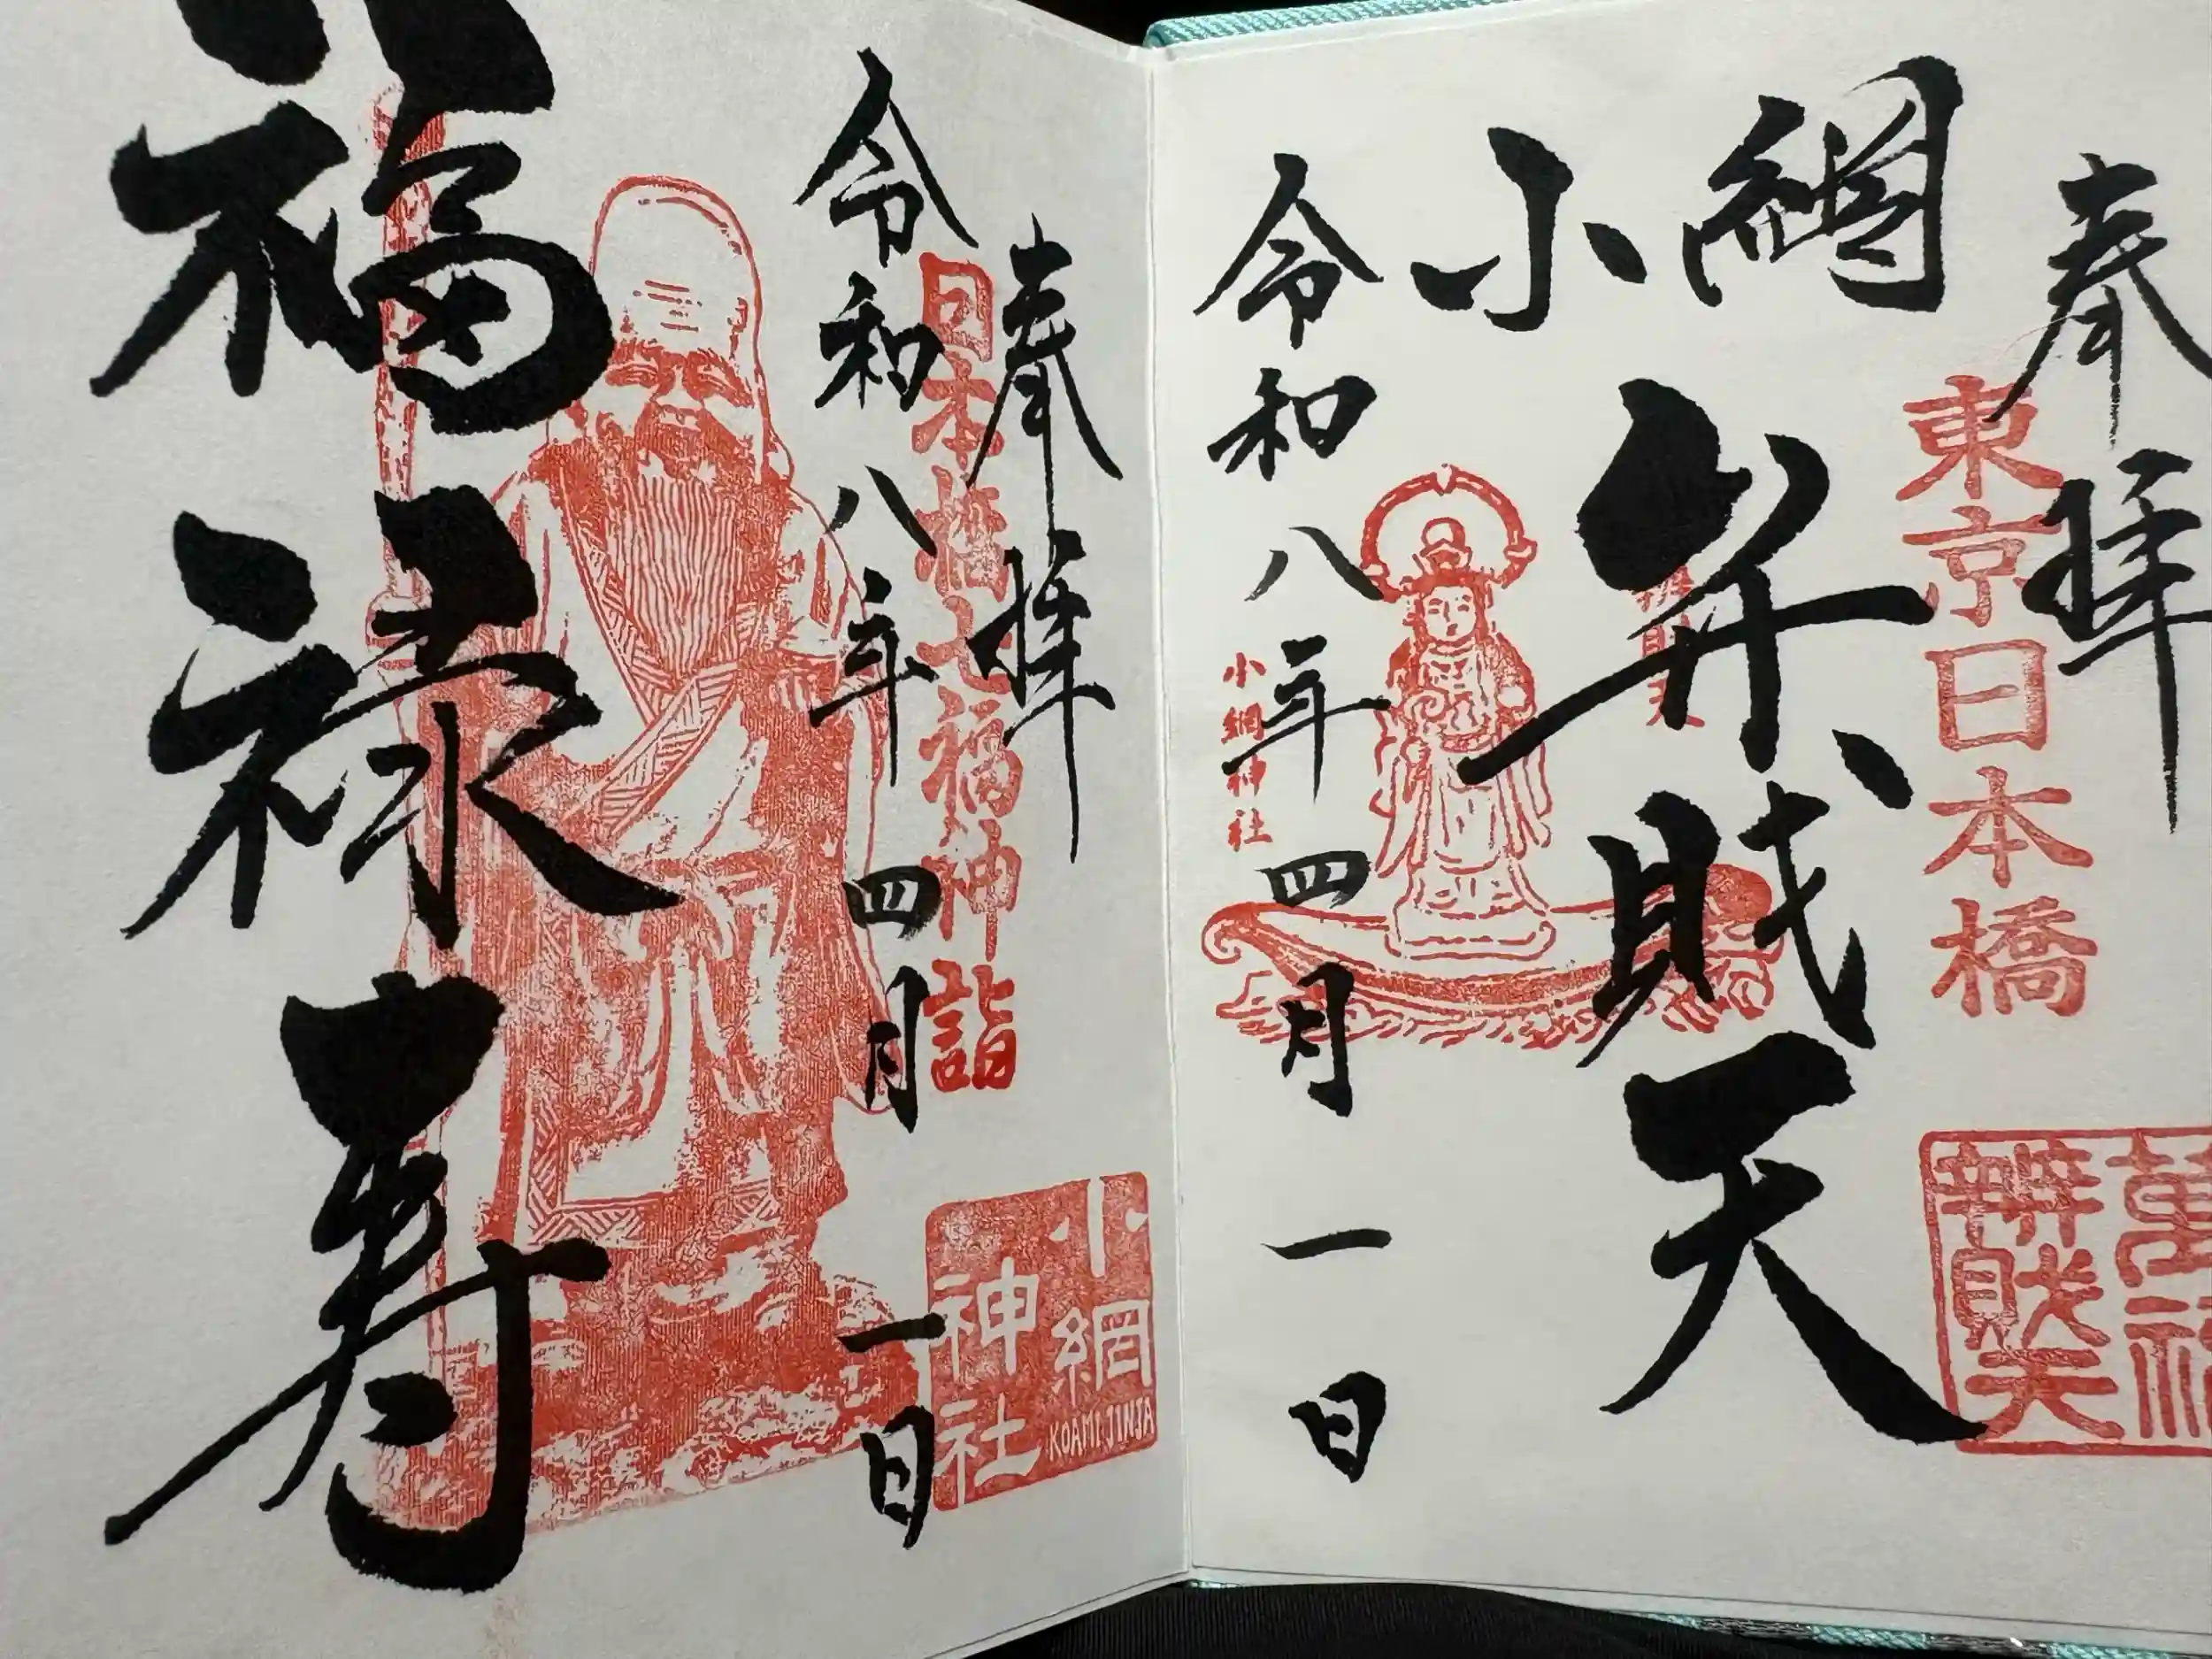 奉拝
東京日本橋
網小
弁財天
令和八年四月一日
小網神社
辨財天
奉拝
日本橋七福神詣
令和八年四月一日
福禄寿
小網
神社
KOAMI JINJA